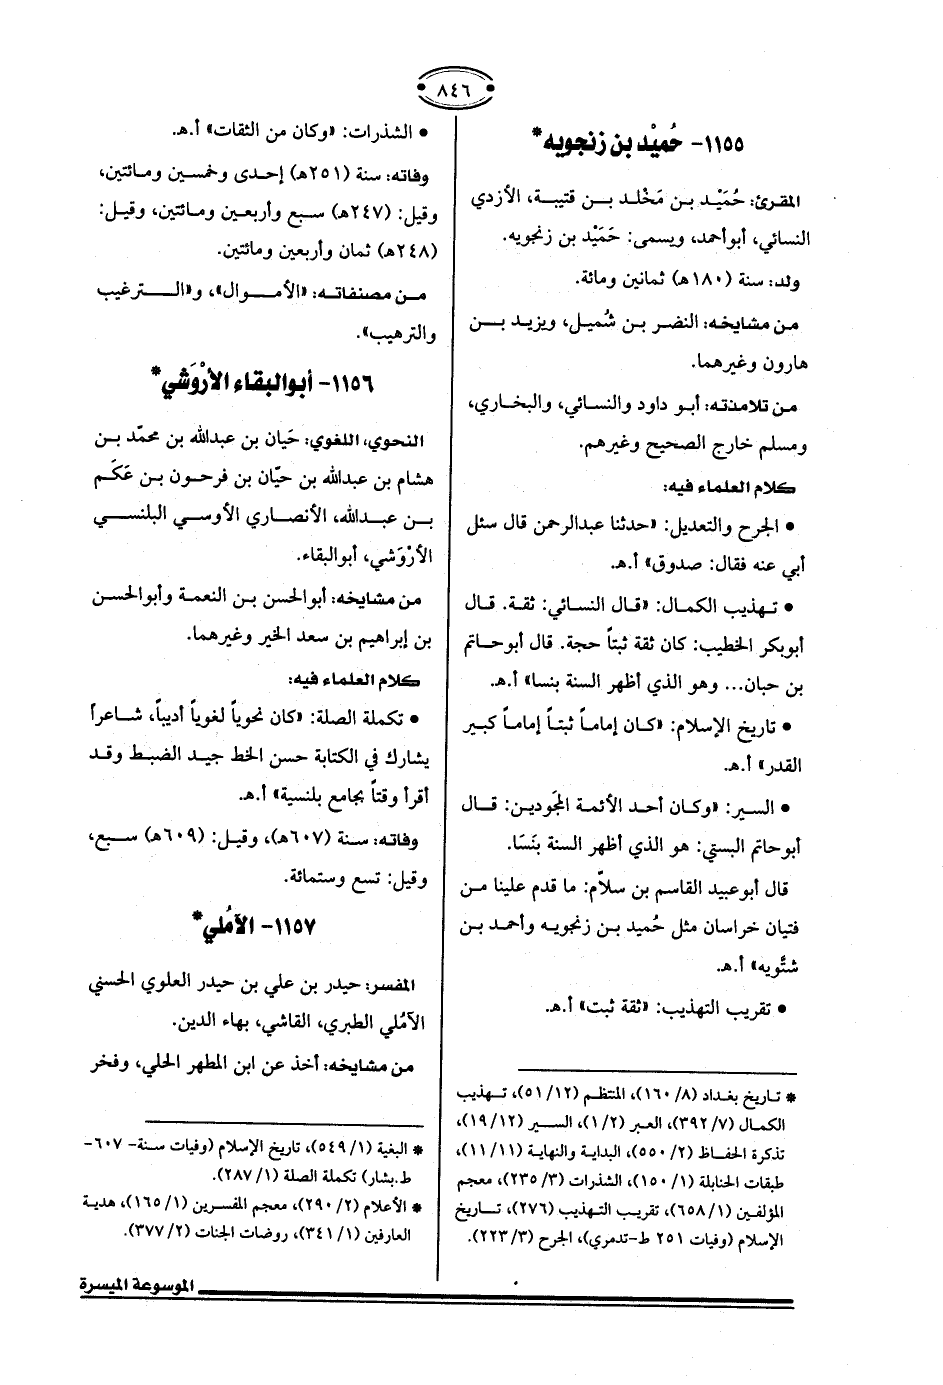 ٨٤٦
١١٥٥- حُميْد بن زنجويه*
المقرئ: حُمَيْد بن مَخْلد بن قتيبة، الأزدي
النسائي، أبو أحمد، ويسمى: حَمَيْد بن زنجويه.
ولد: سنة (١٨٠هـ) ثمانين ومائة.
من مشايخه: النضر بن شُميل، ويزيد بن
هارون وغيرهما.
من تلامذته: أبو داود والنسائي، والبخاري،
ومسلم خارج الصحيح وغيرهم.
كلام العلماء فيه:
• الجرح والتعديل: «حدثنا عبدالرحمن قال سئل
أبي عنه فقال: صدوق» أ.هـ.
• تهذيب الكمال: «قال النسائي: ثقة. قال
أبوبكر الخطيب: كان ثقة ثبتاً حجة. قال أبوحاتم
بن حبان... وهو الذي أظهر السنة بنسا» أ.هـ.
• تاريخ الإسلام: «كان إماماً ثبتاً إماماً كبير
القدر» أ.هـ.
• السير: «وكان أحد الأئمة المجودين: قال
أبوحاتم البستي: هو الذي أظهر السنة بنَسَا.
قال أبوعبيد القاسم بن سلاّم: ما قدم علينا من
فتيان خراسان مثل حُميد بن زنجويه وأحمد بن
شبُّويه» أ.هـ.
• تقريب التهذيب: «ثقة ثبت» أ.هـ.
* تاريخ بغداد (٨/ ١٦٠)، المنتظم (١٢/ ٥١)، تهذيب
الكمال (٧/ ٣٩٢)، العبر (٢/ ١)، السير (١٢/ ١٩)،
تذكرة الحفاظ (٢/ ٥٥٠)، البداية والنهاية (١١/ ١١)،
طبقات الحنابلة (١/ ١٥٠)، الشذرات (٣/ ٢٣٥)، معجم
المؤلفين (١/ ٦٥٨)، تقريب التهذيب (٢٧٦)، تاريخ
الإسلام (وفيات ٢٥١ ط-تدمري)، الجرح (٣/ ٢٢٣).
• الشذرات: «وكان من الثقات» أ.هـ.
وفاته: سنة (٢٥١هـ) إحدى وخمسين ومائتين،
وقيل: (٢٤٧هـ) سبع وأربعين ومائتين، وقيل:
(٢٤٨هـ) ثمان وأربعين ومائتين.
من مصنفاته: «الأموال»، و«الترغيب
والترهيب».
١١٥٦- أبوالبقاء الأرْوَشي*
النحوي، اللغوي: حَيان بن عبدالله بن محمّد بن
هشام بن عبدالله بن حيّان بن فرحون بن عَكَم
بن عبدالله، الأنصاري الأوسي البلنسي
الأرْوَشي، أبوالبقاء.
من مشايخه: أبوالحسن بن النعمة وأبوالحسن
بن إبراهيم بن سعد الخير وغيرهما.
كلام العلماء فيه:
• تكملة الصلة: «كان نحوياً لغوياً أديباً، شاعراً
يشارك في الكتابة حسن الخط جيد الضبط وقد
أقرأ وقتاً بجامع بلنسية» أ.هـ.
وفاته: سنة (٦٠٧هـ)، وقيل: (٦٠٩هـ) سبع،
وقيل: تسع وستمائة.
١١٥٧- الآمُلي*
المفسر: حيدر بن علي بن حيدر العلوي الحسني
الآمُلي الطبري، القاشي، بهاء الدين.
من مشايخه: أخذ عن ابن المطهر الحلي، وفخر
* البغية (١/ ٥٤٩)، تاريخ الإسلام (وفيات سنة- ٦٠٧-
ط.بشار) تكملة الصلة (١/ ٢٨٧).
* الأعلام (٢/ ٢٩٠)، معجم المفسرين (١/ ١٦٥)، هدية
العارفين (١/ ٣٤١)، روضات الجنات (٢/ ٣٧٧).
الموسوعة الميسرة